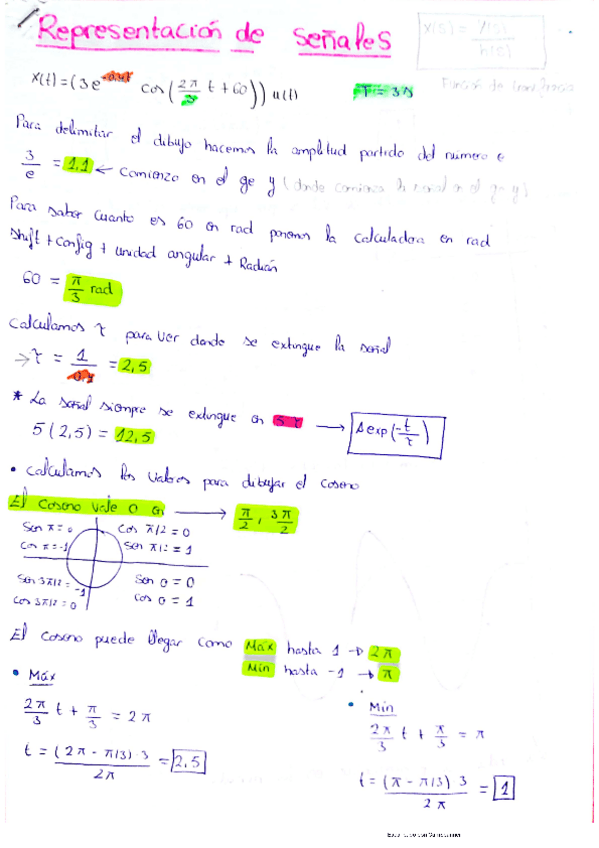 Representación de señales
X(s) = Y(s)
x(t) = (3e cos(2π/3 t + 60)) u(t) T = 3s
Función de transferencia
Para delimitar el dibujo hacemos la amplitud partido del numero e
3/e = 1,1 ← Comienzo en el eje y (donde comienza la señal en el eje y)
Para saber cuanto es 60 en rad ponemos la calculadora en rad
Shift + Config + unidad angular + Radián
60 = π/3 rad
Calculamos τ para ver donde se extingue la señal
→ τ = 1/0,4 = 2,5
* La señal siempre se extingue en 5τ → A exp(-t/τ)
5(2,5) = 12,5
• Calculamos los valores para dibujar el coseno
El coseno vale 0 en → π/2, 3π/2
Sen π = 0 Cos π/2 = 0
Cos π = -1 Sen π/2 = 1
Sen 3π/2 = -1 Sen 0 = 0
Cos 3π/2 = 0 Cos 0 = 1
El coseno puede llegar como Máx hasta 1 → 2π
Mín hasta -1 → π
• Máx
2π/3 t + π/3 = 2π
t = (2π - π/3)·3 / 2π = 2,5
• Min
2π/3 t + π/3 = π
t = (π - π/3) 3 / 2π = 1